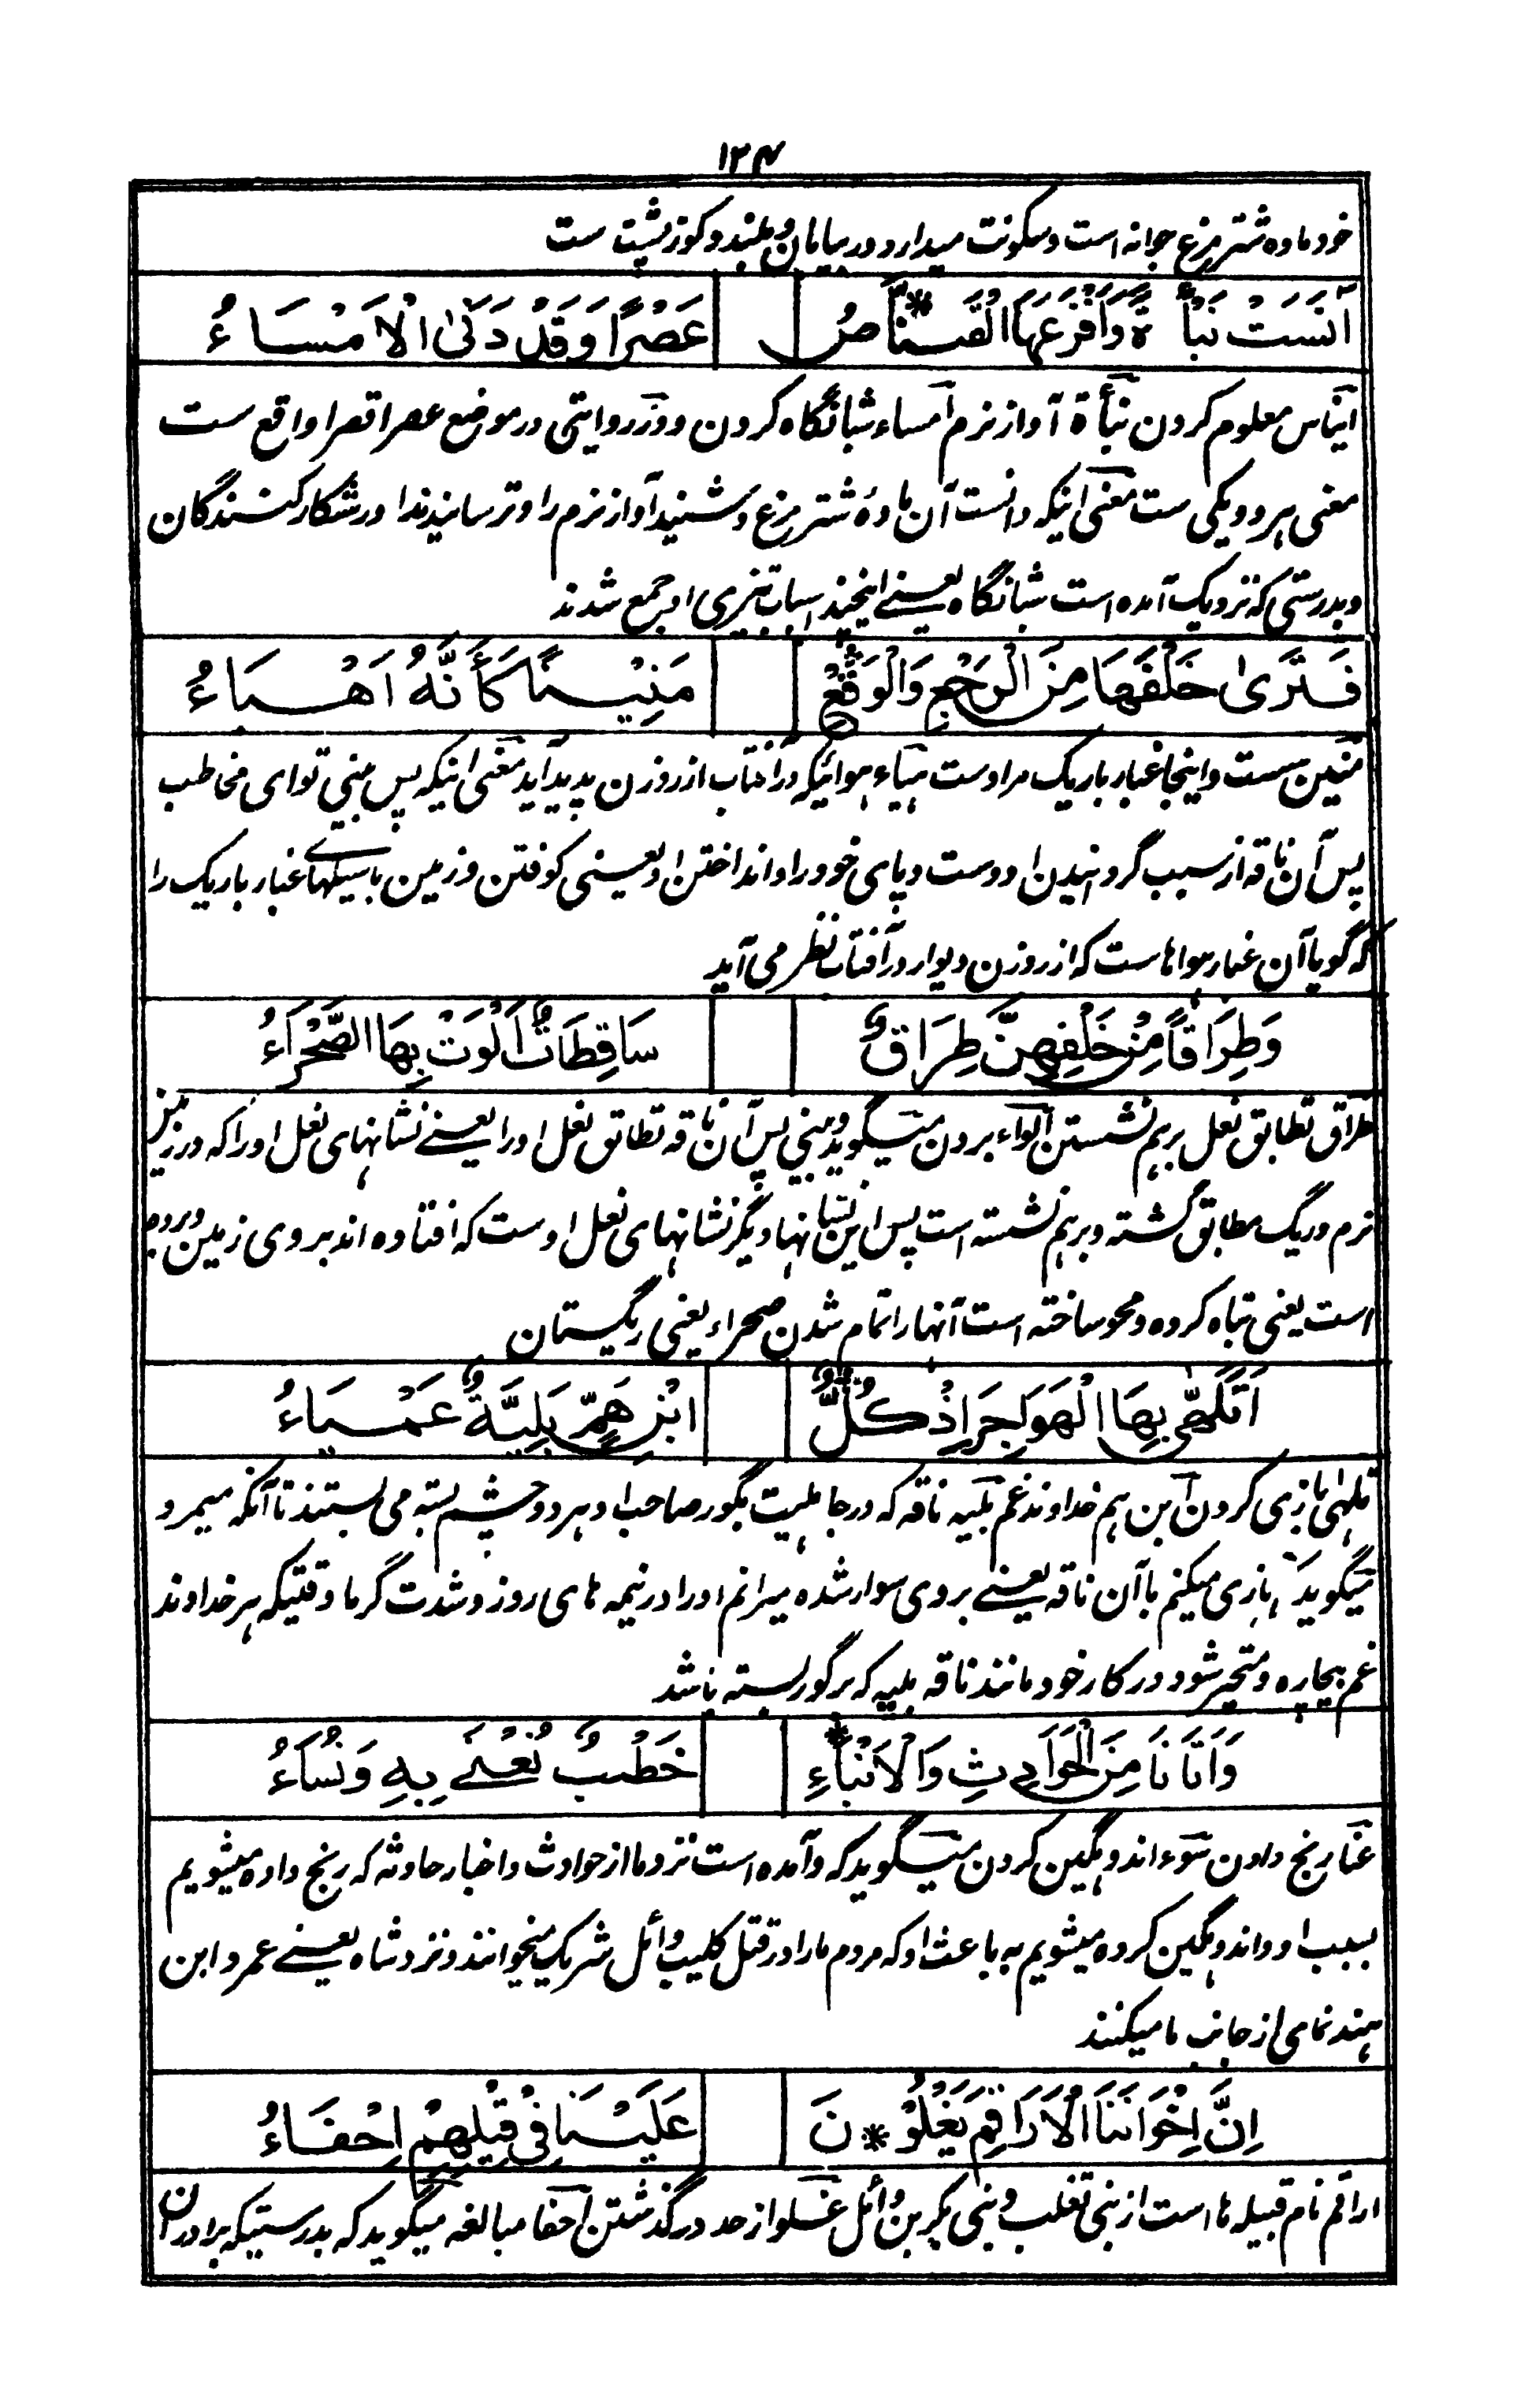 ۱۳۴
خود ماده شتر مرغ جوانه است و سکونت میدارد در بیابان و بلند و کوز پشت ست
آنَسَتْ نَبْأَةً وَاَفْزَعَهَا الْقَنَّاصُ عَصْرًا وَقَدْ دَنٰی الْاَمْسَاءُ
ایناس معلوم کردن نبأة آواز نرم امساء شبانگاه کردن و در روایتی در موضع عصرا قصرا واقع ست
معنی هر دو یکی ست معنی اینکه دانست آن ماده شتر مرغ و شنید آواز نرم را و ترسانیدند او را شکار کنندگان
و بدرستی که نزدیک آمده است شبانگاه یعنے اینچنید اسباب تیزی او جمع شدند
فَتَرٰی خَلْفَهَا مِنَ الرَّجْعِ وَالْوَقْعِ مَنِیْنًا کَأَنَّهُ اَهْبَاءُ
منین سست و اینجا غبار باریک مراد ست هباء هوائیکه در آفتاب از روزن پدید آید معنی اینکه پس بینی تو ای مخاطب
پس آن ناقه از سبب گردانیدن او دست و پای خود را و انداختن او یعنی کوفتن و زمین با سبلهاے غبار باریک را
که گویا آن غبار هواها ست که از روزن دیوار در آفتاب نظر می آید
وَطِرَاقًا مِنْ خَلْفِهِنَّ طِرَاقٌ سَاقِطَاتٌ اَلْوَتْ بِهَا الصَّحْرَاءُ
طراق تطابق نعل برهم نشستن الواء بردن میگوید و بینی پس آن ناقه تطابق نعل او را یعنے نشانهای نعل او را که در زمین
نرم و ریگ مطابق گشته و برهم نشسته است پس این نشانها دیگر نشانهای نعل او ست که افتاده اند بروی زمین و برده
است یعنی تباه کرده و محو ساخته است آنها را تمام شدن صحراء یعنی ریگستان
اَتَلَهّٰی بِهَا الْهَوَاجِرَ اِذْ کُلُّ ابْنِ هَمٍّ بَلِیَّةٌ عَمْیَاءُ
تلهی بازی کردن ابن هم خداوند غم بلیه ناقه که در جاهلیت بگور صاحب او هر دو چشم بسته می بستند تا آنکه میمرد
میگوید بازی میکنم با آن ناقه یعنے بروی سوار شده میرانم او را در نیمه های روز و شدت گرما وقتیکه هر خداوند
غم بیچاره و متحیر شود در کار خود مانند ناقه بلیه که بر گور بسته باشد
وَاَتَانَا مِنَ الْحَوَادِثِ وَالْاَنْبَاءِ خَطْبٌ نُعْنٰے بِهِ وَنُسَاءُ
عنا رنج دادن سوء اندوهگین کردن میگوید که و آمده است نزد ما از حوادث و اخبار حادثه که رنج داده میشویم
بسبب او و اندوهگین کرده میشویم به باعث او که مردم ما را در قتل کلیب وائل شریک میخوانند و نزد شاه یعنے عمرو ابن
هند نمامی از جانب ما میکنند
اِنَّ اِخْوَانَنَا الْاَرَاقِمَ یَغْلُوْنَ عَلَیْنَا فِیْ قِیْلِهِمْ اِحْفَاءُ
اراقم نام قبیله ها است از بنی تغلب و بنی بکر بن وائل غلو از حد در گذشتن احفا مبالغه میگوید که بدرستیکه برادران